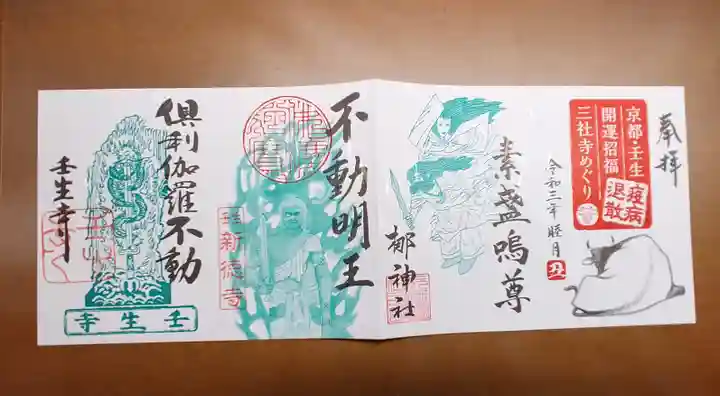 奉拝
京都・壬生
開運招福
三社寺めぐり
疫病
退散
令和三年 睦月
丑
素盞嗚尊
梛神社
不動明王
新徳寺
倶利伽羅不動
壬生寺
壬生寺